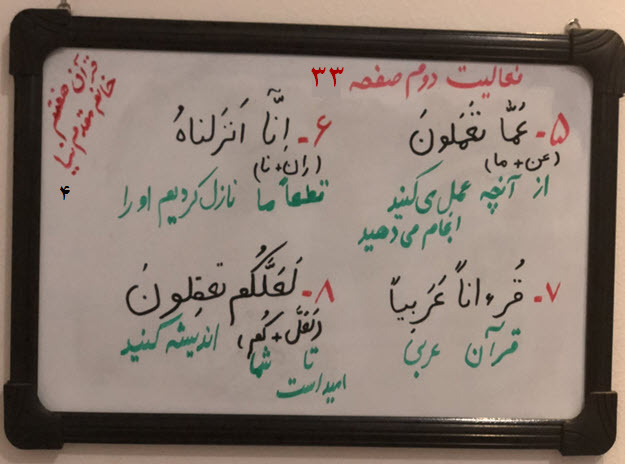 فعالیت دوم صفحه ۳۳
قرآن هفتم
خانم مقدم نیا
۴
۵- عَمّا تَعْمَلونَ
(عن + ما)
از آنچه عمل می کنید
انجام می دهید
۶- اِنّآ اَنزَلناهُ
(اِن + نا)
قطعاً ما نازل کردیم او را
۷- قُرءاناً عَرَبیاً
قرآن عربی
۸- لَعَلَّکُم تَعقِلونَ
(لَعَلَّ + کُم)
تا شما اندیشه کنید
امید است